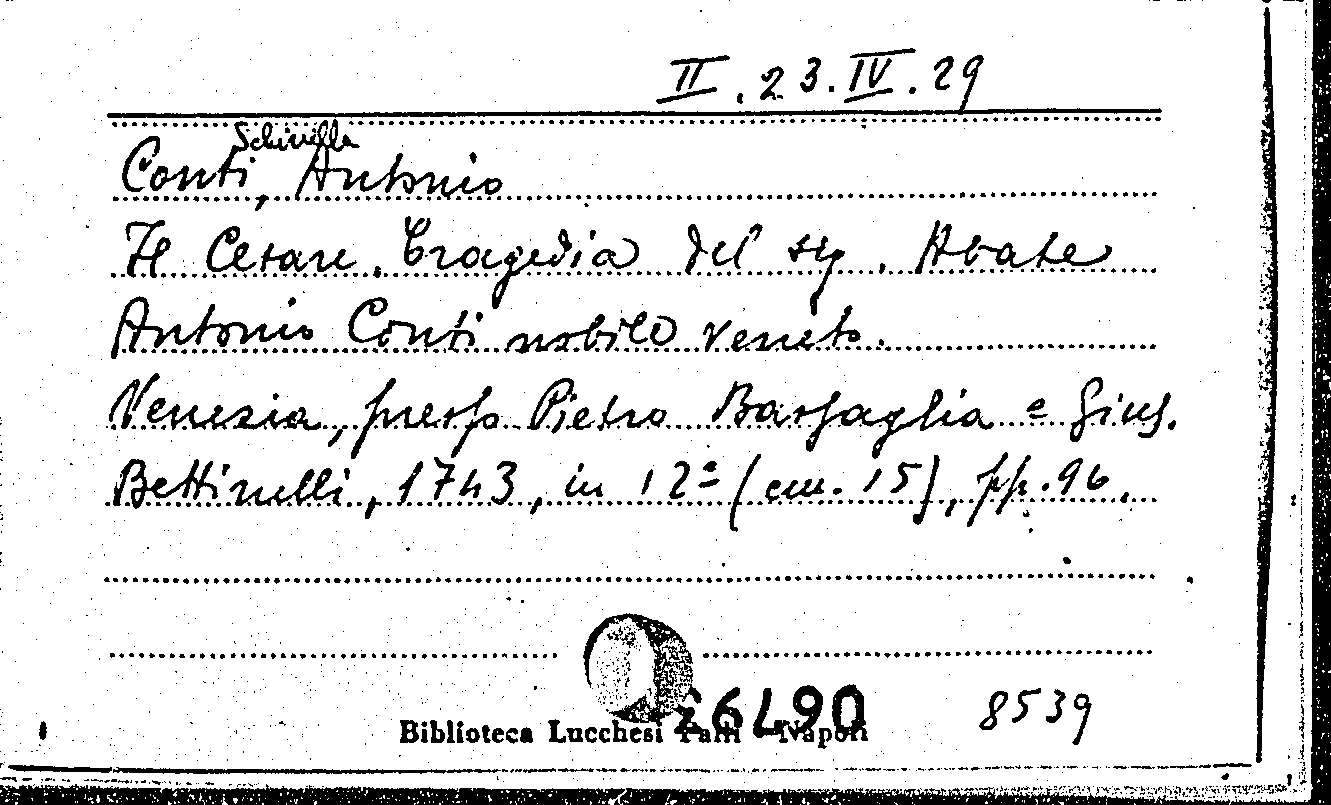 II. 23. IV. 29
Schinella
Conti, Antonio
Il Cesare. Tragedia del sig. Abate
Antonio Conti nobile veneto.
Venezia, presso Pietro Bassaglia e Gius.
Bettinelli, 1743, in 12º (cm. 15), pp. 96.
8539
Biblioteca Lucchesi Palli - Napoli